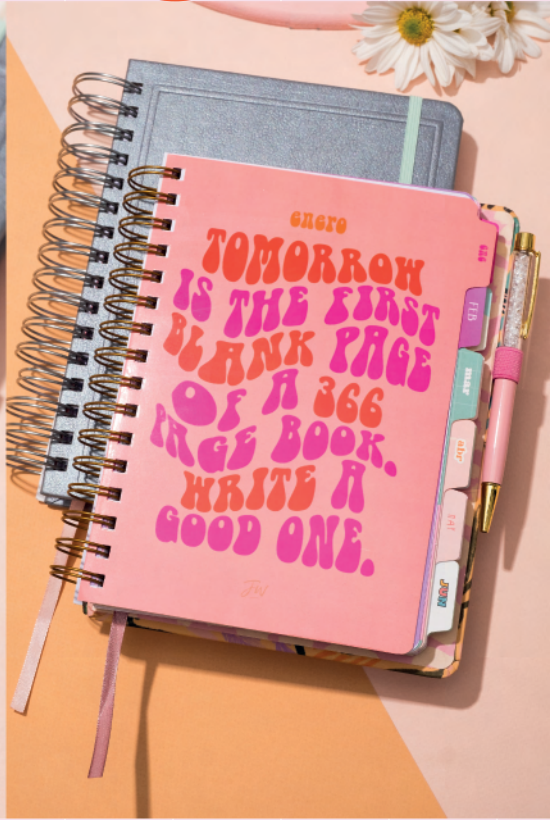 enero
TOMORROW
IS THE FIRST
BLANK PAGE
OF A 366
PAGE BOOK.
WRITE A
GOOD ONE.
FEB
mar
abr
JUN